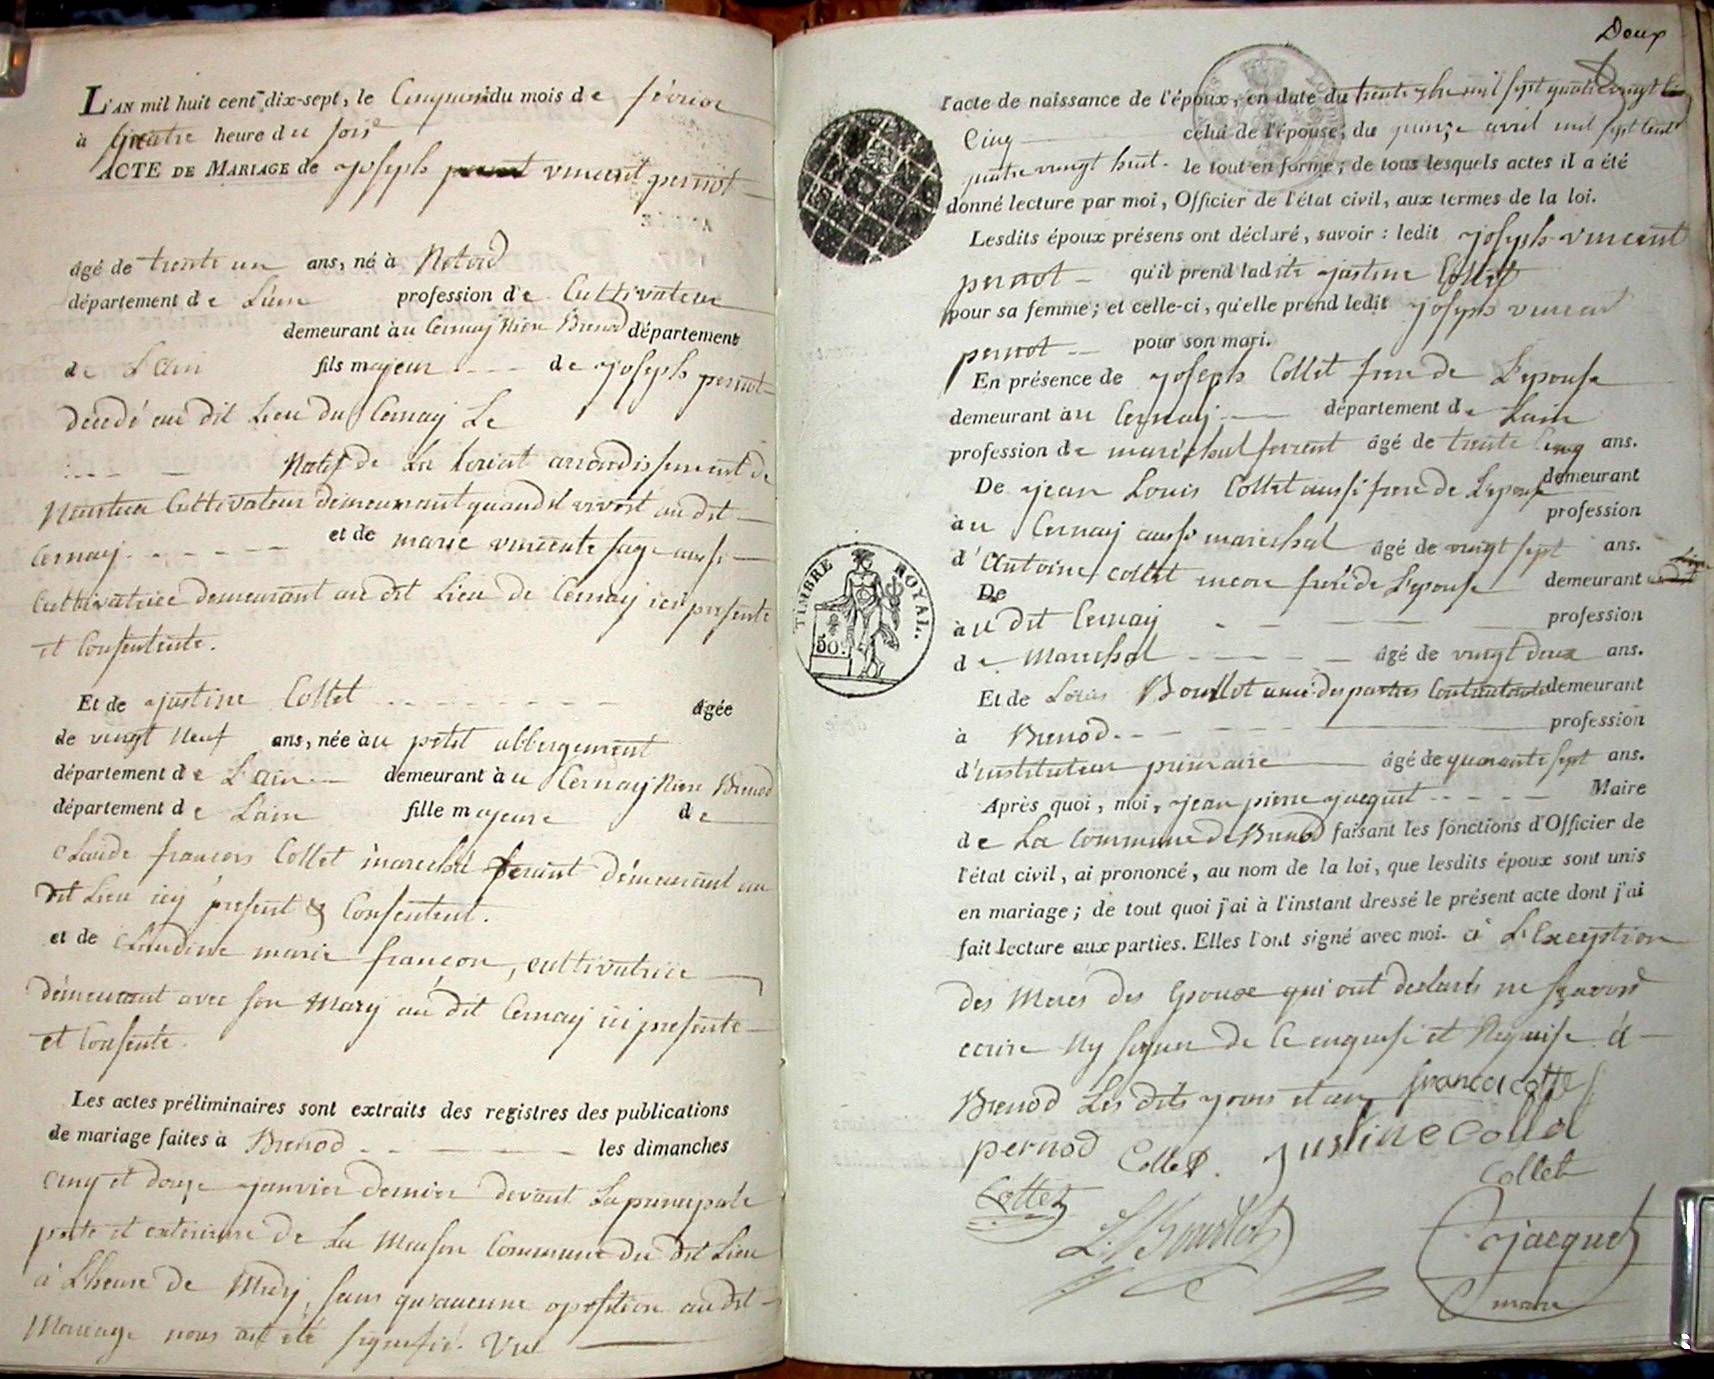 L'AN mil huit cent dix-sept, le Cinquiemᵉ du mois de février
à Quatre heure du soir
ACTE DE MARIAGE de joseph vincent pernot
âgé de trente un ans, né à
département de L'ain profession de Cultivateur
demeurant au Cernay Riere Brenod département
de L'ain fils majeur de joseph pernot
decedé au dit Lieu du Cernay Le
Natif de La arrondissement de
Nantua Cultivateur demeurant quand il vivoit au dit
Cernay et de marie vincente sage aussi
Cultivatrice demeurant au dit Lieu de Cernay ici presente
et Consentente.
Et de justine Collet âgée
de vingt Neuf ans, née au petit abbergement
département de L'ain demeurant au Cernay Riere Brenod
département de L'ain fille majeure de
Claude francois Collet marechal ferrant démeurant au
dit Lieu icy présent & Consentent.
et de Claudine marie francon, cultivatrice
démeurant avec son Mary au dit Cernay ici presente
et Consente.
Les actes préliminaires sont extraits des registres des publications
de mariage faites à Brenod les dimanches
cinq et douze janvier dernier devant La principale
porte et exterieure de La Maison Commune du dit Lieu
à L'heure de Midy, sans qu'aucune oposition au dit
Mariage nous ait été signifié. Vu
Deux
l'acte de naissance de l'époux, en date du trente 7bre mil sept quatre vingt
Cinq celui de l'épouse, du quinze avril mil sept cent
quatre vingt huit. le tout en forme; de tous lesquels actes il a été
donné lecture par moi, Officier de l'état civil, aux termes de la loi.
Lesdits époux présens ont déclaré, savoir : ledit joseph vincent
pernot qu'il prend ladite justine Collet
pour sa femme; et celle-ci, qu'elle prend ledit joseph vincent
pernot pour son mari.
En présence de joseph Collet frere de L'epouse
demeurant au Cernay département de Lain
profession de maréchal ferrent âgé de trente Cinq ans.
De jean Louis Collet aussi frere de L'epouse demeurant
au Cernay aussi marechal profession
âgé de vingt sept ans.
De d'Antoine Collet encore frere de L'epouse demeurant
au dit Cernay profession
de Marechal âgé de vingt deux ans.
Et de Louis Bouillot ami des parties Contractantes demeurant
à Brenod profession
d'instituteur primaire âgé de quarante sept ans.
Après quoi, moi, jean pierre jacquet Maire
de La Commune de Brenod faisant les fonctions d'Officier de
l'état civil, ai prononcé, au nom de la loi, que lesdits époux sont unis
en mariage; de tout quoi j'ai à l'instant dressé le présent acte dont j'ai
fait lecture aux parties. Elles l'ont signé avec moi. à L'Exception
des Meres des Epoux qui ont declarés ne sçavoir
ecrire Ny signer de ce enquise et Requise à
Brenod Les dits jours et an francoi collet
pernod Collet. justine Collet
Collet Collet
L. Bouillot jacquet
maire
TIMBRE ROYAL.
50 c